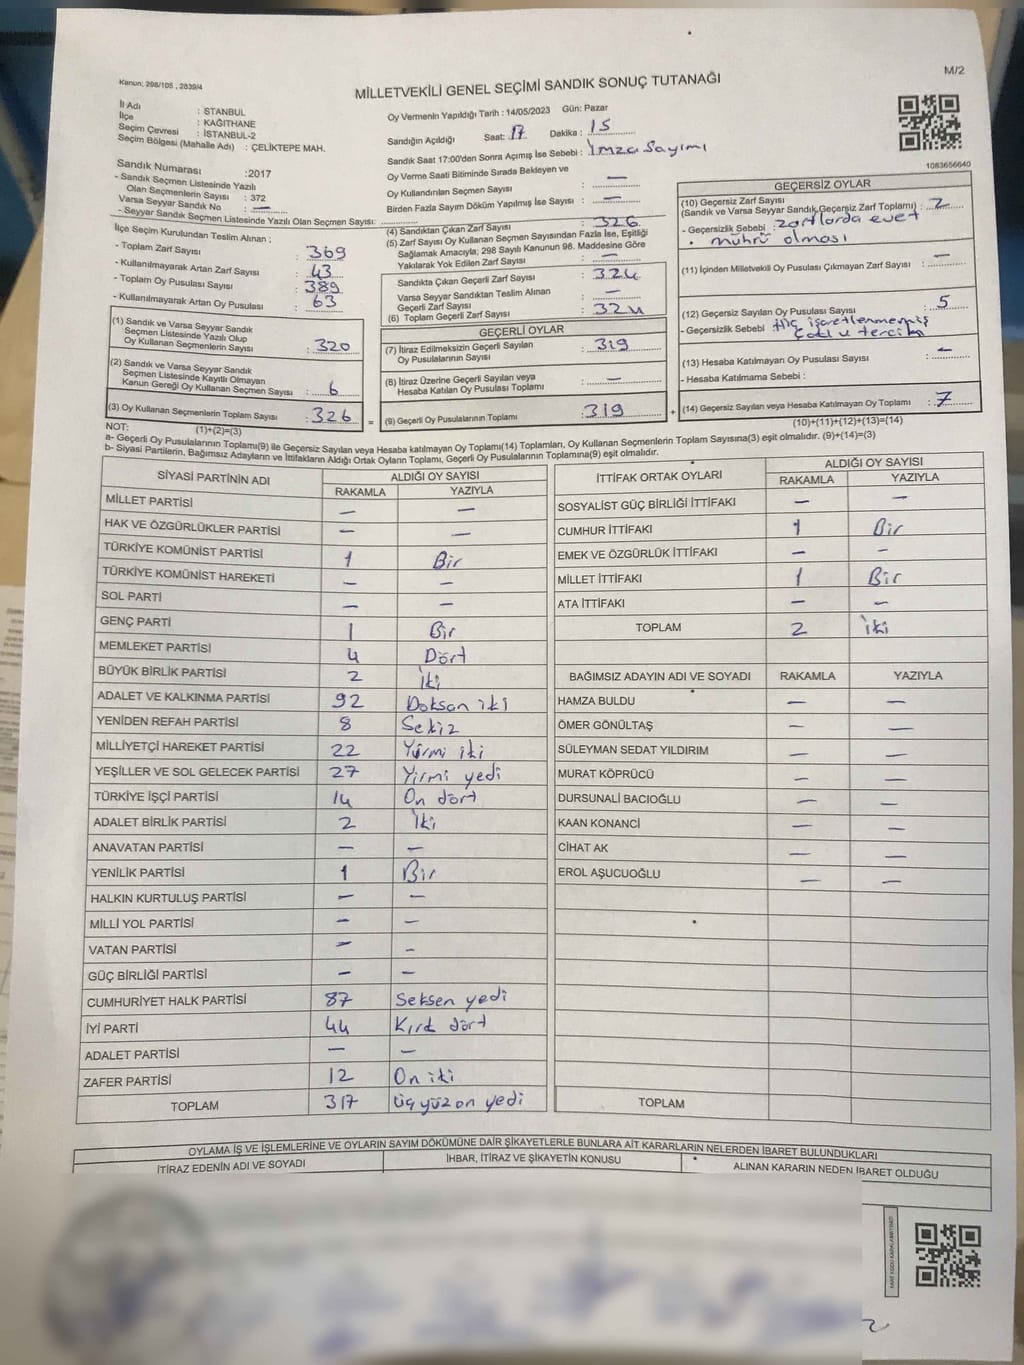 M/2
Kanun: 298/105 , 2839/4
MİLLETVEKİLİ GENEL SEÇİMİ SANDIK SONUÇ TUTANAĞI
İl Adı : İSTANBUL
İlçe : KAĞITHANE
Seçim Çevresi : İSTANBUL-2
Seçim Bölgesi (Mahalle Adı) : ÇELİKTEPE MAH.
Sandık Numarası :2017
- Sandık Seçmen Listesinde Yazılı
Olan Seçmenlerin Sayısı : 372
Varsa Seyyar Sandık No : —
- Seyyar Sandık Seçmen Listesinde Yazılı Olan Seçmen Sayısı:
İlçe Seçim Kurulundan Teslim Alınan ;
- Toplam Zarf Sayısı : 369
- Kullanılmayarak Artan Zarf Sayısı : 43
- Toplam Oy Pusulası Sayısı : 389
- Kullanılmayarak Artan Oy Pusulası : 63
(1) Sandık ve Varsa Seyyar Sandık
Seçmen Listesinde Yazılı Olup
Oy Kullanan Seçmenlerin Sayısı : 320
(2) Sandık ve Varsa Seyyar Sandık
Seçmen Listesinde Kayıtlı Olmayan
Kanun Gereği Oy Kullanan Seçmen Sayısı : 6
(3) Oy Kullanan Seçmenlerin Toplam Sayısı : 326 =
(1)+(2)=(3)
Oy Vermenin Yapıldığı Tarih : 14/05/2023 Gün: Pazar
Sandığın Açıldığı Saat: 17 Dakika : 15
Sandık Saat 17:00'den Sonra Açımış İse Sebebi : İmza Sayımı
Oy Verme Saati Bitiminde Sırada Bekleyen ve
Oy Kullandırılan Seçmen Sayısı : —
Birden Fazla Sayım Döküm Yapılmış İse Sayısı : —
(4) Sandıktan Çıkan Zarf Sayısı : 326
(5) Zarf Sayısı Oy Kullanan Seçmen Sayısından Fazla İse, Eşitliği
Sağlamak Amacıyla; 298 Sayılı Kanunun 98. Maddesine Göre
Yakılarak Yok Edilen Zarf Sayısı : —
Sandıkta Çıkan Geçerli Zarf Sayısı : 324
Varsa Seyyar Sandıktan Teslim Alınan
Geçerli Zarf Sayısı : —
(6) Toplam Geçerli Zarf Sayısı : 324
GEÇERLİ OYLAR
(7) İtiraz Edilmeksizin Geçerli Sayılan
Oy Pusulalarının Sayısı : 319
(8) İtiraz Üzerine Geçerli Sayılan veya
Hesaba Katılan Oy Pusulası Toplamı : —
(9) Geçerli Oy Pusulalarının Toplamı : 319 +
1083656640
GEÇERSİZ OYLAR
(10) Geçersiz Zarf Sayısı
(Sandık ve Varsa Seyyar Sandık Geçersiz Zarf Toplamı) : 2
- Geçersizlik Sebebi : zarflarda evet
mührü olması
(11) İçinden Milletvekili Oy Pusulası Çıkmayan Zarf Sayısı : —
(12) Geçersiz Sayılan Oy Pusulası Sayısı : 5
- Geçersizlik Sebebi : Hiç işaretlenmemiş
çoklu tercih
(13) Hesaba Katılmayan Oy Pusulası Sayısı : —
- Hesaba Katılmama Sebebi :
(14) Geçersiz Sayılan veya Hesaba Katılmayan Oy Toplamı : 7
(10)+(11)+(12)+(13)=(14)
NOT:
a- Geçerli Oy Pusulalarının Toplamı(9) ile Geçersiz Sayılan veya Hesaba katılmayan Oy Toplamı(14) Toplamları, Oy Kullanan Seçmenlerin Toplam Sayısına(3) eşit olmalıdır. (9)+(14)=(3)
b- Siyasi Partilerin, Bağımsız Adayların ve İttifakların Aldığı Ortak Oyların Toplamı, Geçerli Oy Pusulalarının Toplamına(9) eşit olmalıdır.
SİYASİ PARTİNİN ADI ALDIĞI OY SAYISI
RAKAMLA YAZIYLA
MİLLET PARTİSİ — —
HAK VE ÖZGÜRLÜKLER PARTİSİ — —
TÜRKİYE KOMÜNİST PARTİSİ 1 Bir
TÜRKİYE KOMÜNİST HAREKETİ — —
SOL PARTİ — —
GENÇ PARTİ 1 Bir
MEMLEKET PARTİSİ 4 Dört
BÜYÜK BİRLİK PARTİSİ 2 İki
ADALET VE KALKINMA PARTİSİ 92 Doksan iki
YENİDEN REFAH PARTİSİ 8 Sekiz
MİLLİYETÇİ HAREKET PARTİSİ 22 Yirmi iki
YEŞİLLER VE SOL GELECEK PARTİSİ 27 Yirmi yedi
TÜRKİYE İŞÇİ PARTİSİ 14 On dört
ADALET BİRLİK PARTİSİ 2 İki
ANAVATAN PARTİSİ — —
YENİLİK PARTİSİ 1 Bir
HALKIN KURTULUŞ PARTİSİ — —
MİLLİ YOL PARTİSİ — —
VATAN PARTİSİ — —
GÜÇ BİRLİĞİ PARTİSİ — —
CUMHURİYET HALK PARTİSİ 87 Seksen yedi
İYİ PARTİ 44 Kırk dört
ADALET PARTİSİ — —
ZAFER PARTİSİ 12 On iki
TOPLAM 317 Üçyüz on yedi
İTTİFAK ORTAK OYLARI ALDIĞI OY SAYISI
RAKAMLA YAZIYLA
SOSYALİST GÜÇ BİRLİĞİ İTTİFAKI — —
CUMHUR İTTİFAKI 1 Bir
EMEK VE ÖZGÜRLÜK İTTİFAKI — —
MİLLET İTTİFAKI 1 Bir
ATA İTTİFAKI — —
TOPLAM 2 İki
BAĞIMSIZ ADAYIN ADI VE SOYADI RAKAMLA YAZIYLA
HAMZA BULDU — —
ÖMER GÖNÜLTAŞ — —
SÜLEYMAN SEDAT YILDIRIM — —
MURAT KÖPRÜCÜ — —
DURSUNALİ BACIOĞLU — —
KAAN KONANCİ — —
CİHAT AK — —
EROL AŞUCUOĞLU — —
TOPLAM
OYLAMA İŞ VE İŞLEMLERİNE VE OYLARIN SAYIM DÖKÜMÜNE DAİR ŞİKAYETLERLE BUNLARA AİT KARARLARIN NELERDEN İBARET BULUNDUKLARI
İTİRAZ EDENİN ADI VE SOYADI İHBAR, İTİRAZ VE ŞİKAYETİN KONUSU ALINAN KARARIN NEDEN İBARET OLDUĞU